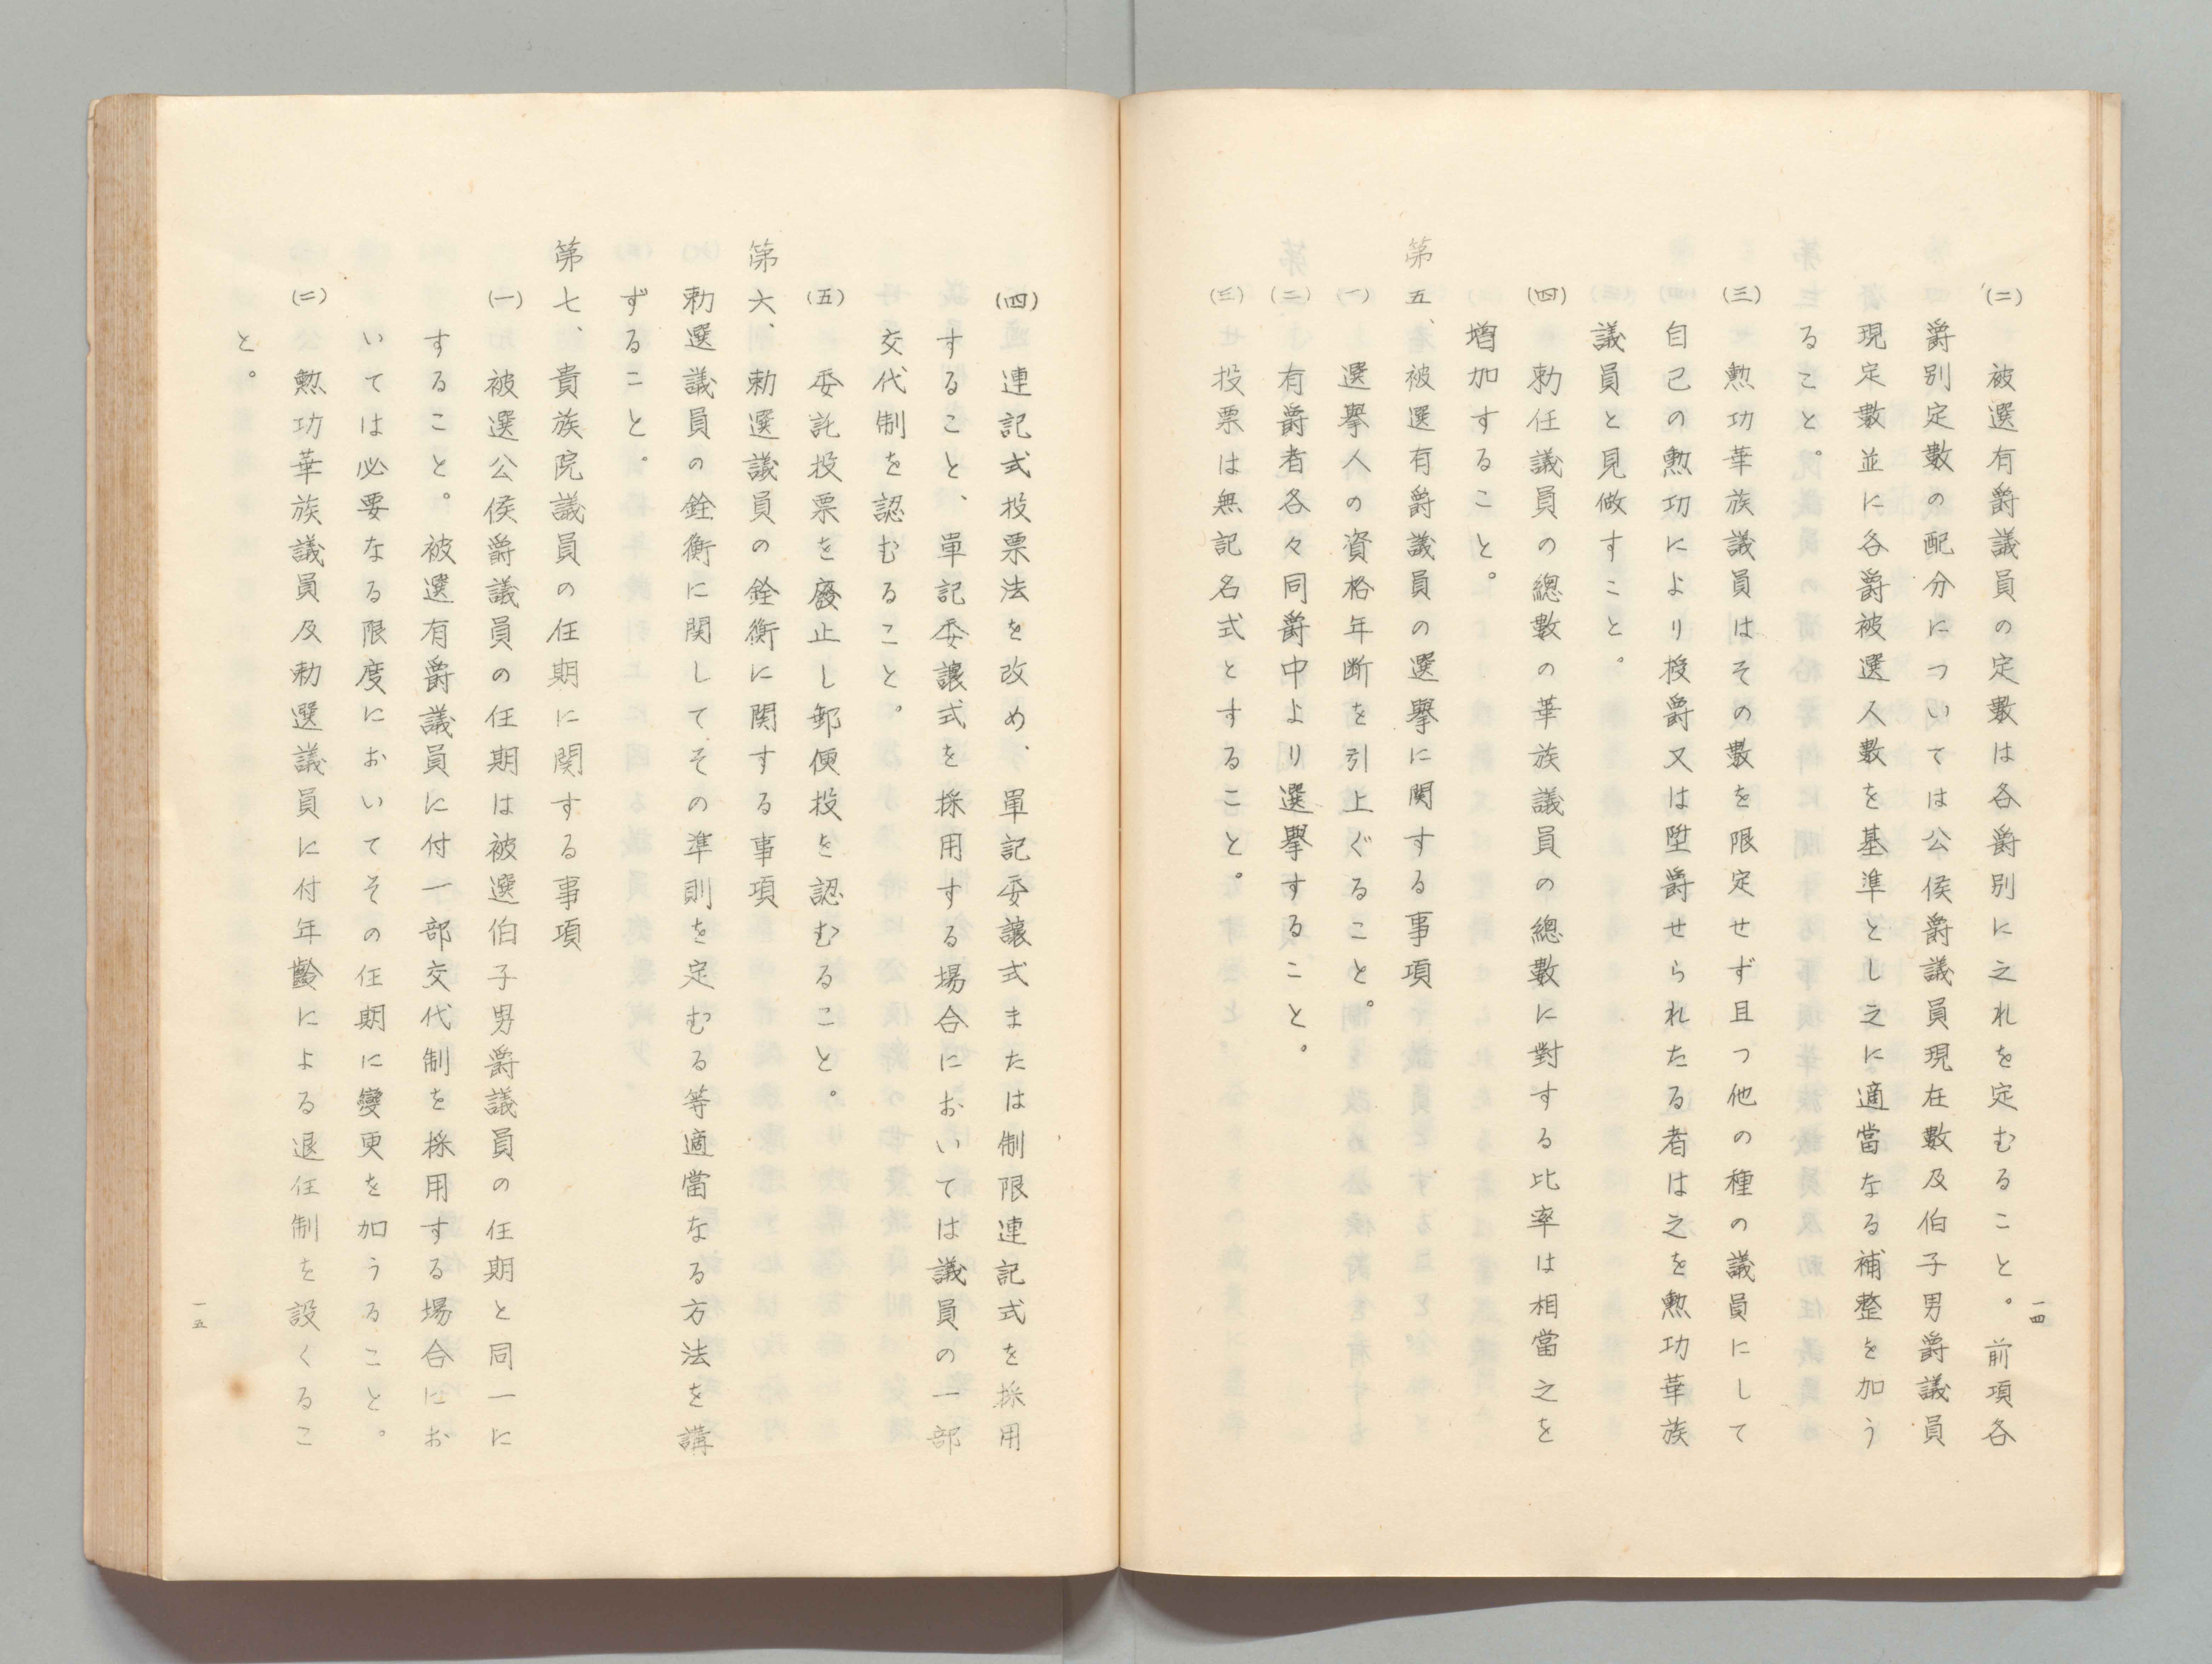 一四
(二) 被選有爵議員の定數は各爵別に之れを定むること。前項各
爵別定數の配分については公侯爵議員現在數及伯子男爵議員
現定數並に各爵被選人數を基準とし之に適當なる補整を加う
ること。
(三) 勲功華族議員はその數を限定せず且つ他の種の議員にして
自己の勲功により授爵又は陞爵せられたる者は之を勲功華族
議員と見做すこと。
(四) 勅任議員の總數の華族議員の總數に對する比率は相當之を
増加すること。
第五、被選有爵議員の選擧に関する事項
(一) 選擧人の資格年断を引上ぐること。
(二) 有爵者各々同爵中より選擧すること。
(三) 投票は無記名式とすること。
(四) 連記式投票法を改め、單記委讓式または制限連記式を採用
すること、單記委讓式を採用する場合においては議員の一部
交代制を認むること。
(五) 委託投票を廢止し郵便投を認むること。
第六、勅選議員の銓衡に関する事項
勅選議員の銓衡に関してその準則を定むる等適當なる方法を講
ずること。
第七、貴族院議員の任期に関する事項
(一) 被選公侯爵議員の任期は被選伯子男爵議員の任期と同一に
すること。被選有爵議員に付一部交代制を採用する場合にお
いては必要なる限度においてその任期に變更を加うること。
(二) 勲功華族議員及勅選議員に付年齡による退任制を設くるこ
と。
一五